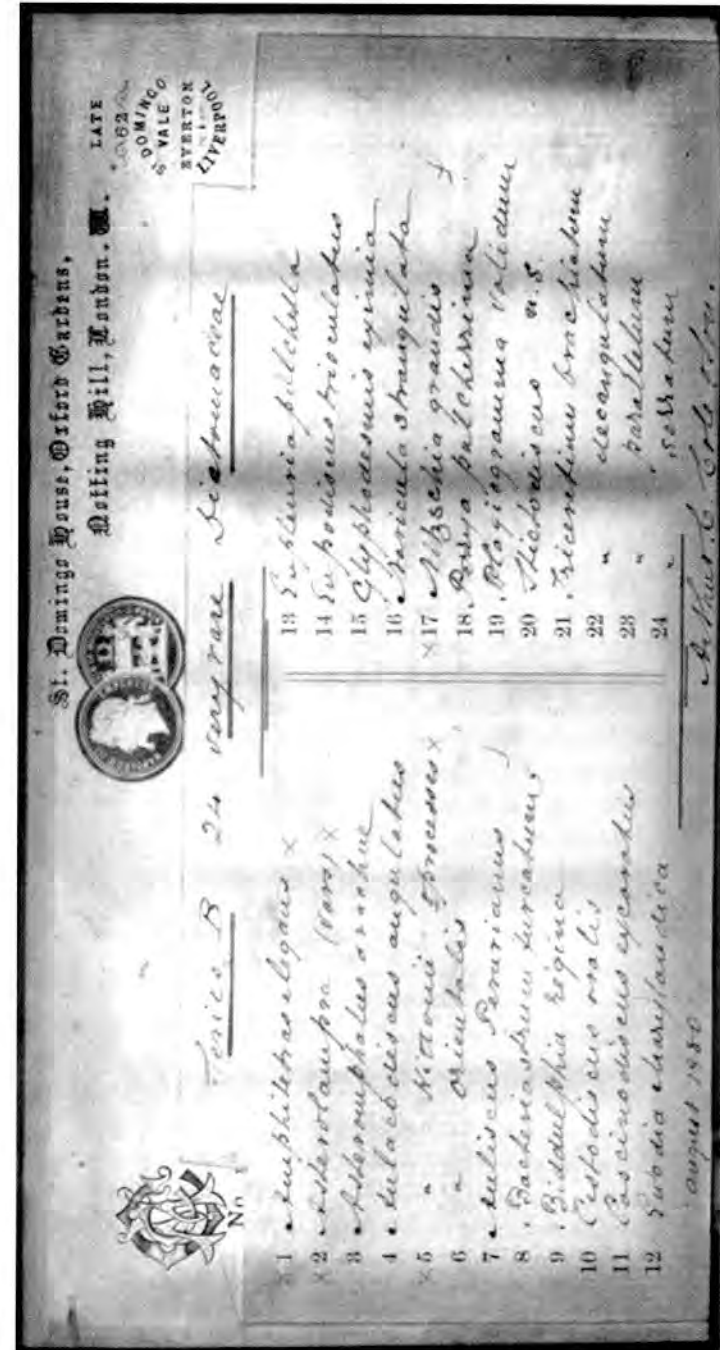 St. Domingo House, Oxford Gardens,
Notting Hill, London. W.
LATE
62
St DOMINGO
VALE
EVERTON
LIVERPOOL
No
Series B 24 very rare Diatomaceae
× 1 Amphitetras elegans ×
× 2 Asterolampra (vary) ×
3 Asteromphalus arachne
4 Aulacodiscus angulatus
× 5 " Kittonii processes ×
6 " orientalis
7 Auliscus Peruvianus
8 Bacteriastrum furcatum
9 Biddulphia regina
10 Cestodiscus ovalis
11 Coscinodiscus excavatus
12 Euodia Marylandica
August 1880
13 Eupleuria pulchella
14 Eupodiscus trioculatus
15 Glyphodesmis eximia
16 Navicula strangulata
× 17 Nitzschia grandis
18 Porpeia pulcherrima
19 Plagiogramma validum
20 Stictodiscus n.s.
21 Triceratium brachiatum
22 " decangulatum
23 " parallelum
24 " serratum
Arthur C Cole & Son.